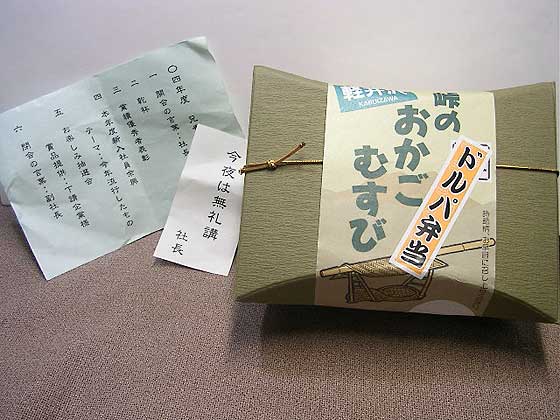 〇四年度 忘
一 開会の言葉:社長
二 乾杯
三 業績優秀者表彰
四 本年度新入社員余興
テーマ:今年流行したもの
五 お楽しみ抽選会
賞品提供:下請企業様
六 閉会の言葉:副社長
今夜は無礼講
社長
軽井沢
KARUIZAWA
峠の
おかご
むすび
ドルパ弁当